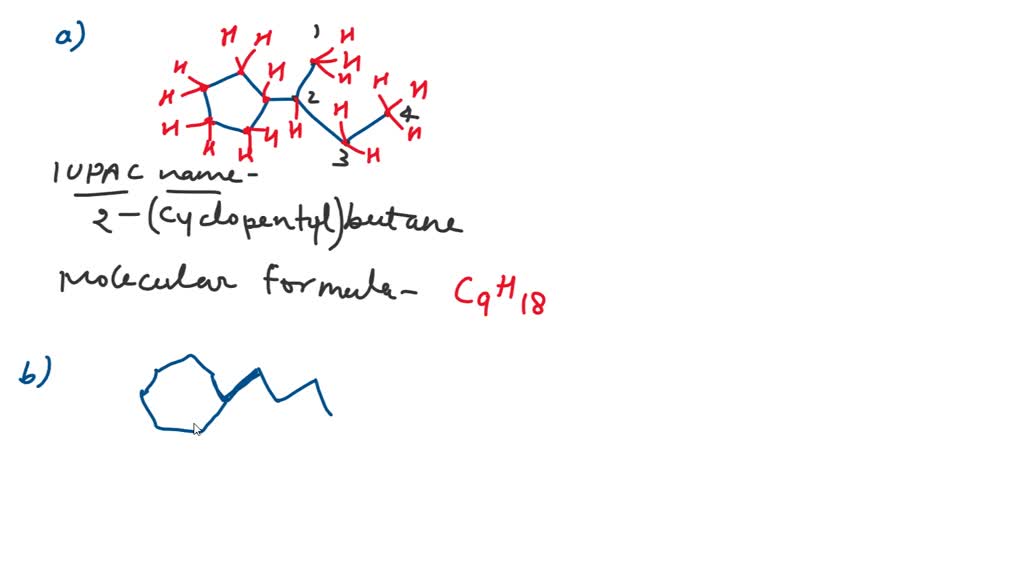 a)
1
H H H
H H H H
H 2 H H H
H 4
H H H H H H
H H 3 H
IUPAC name-
2-(Cyclopentyl)butane
Molecular formula- C9H18
b)